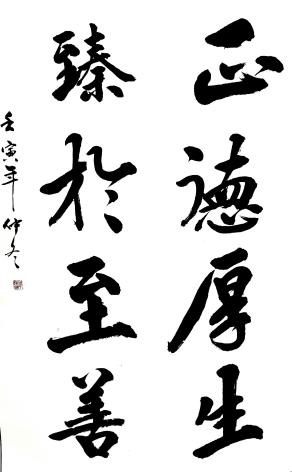 正德厚生
臻於至善
壬寅年仲冬